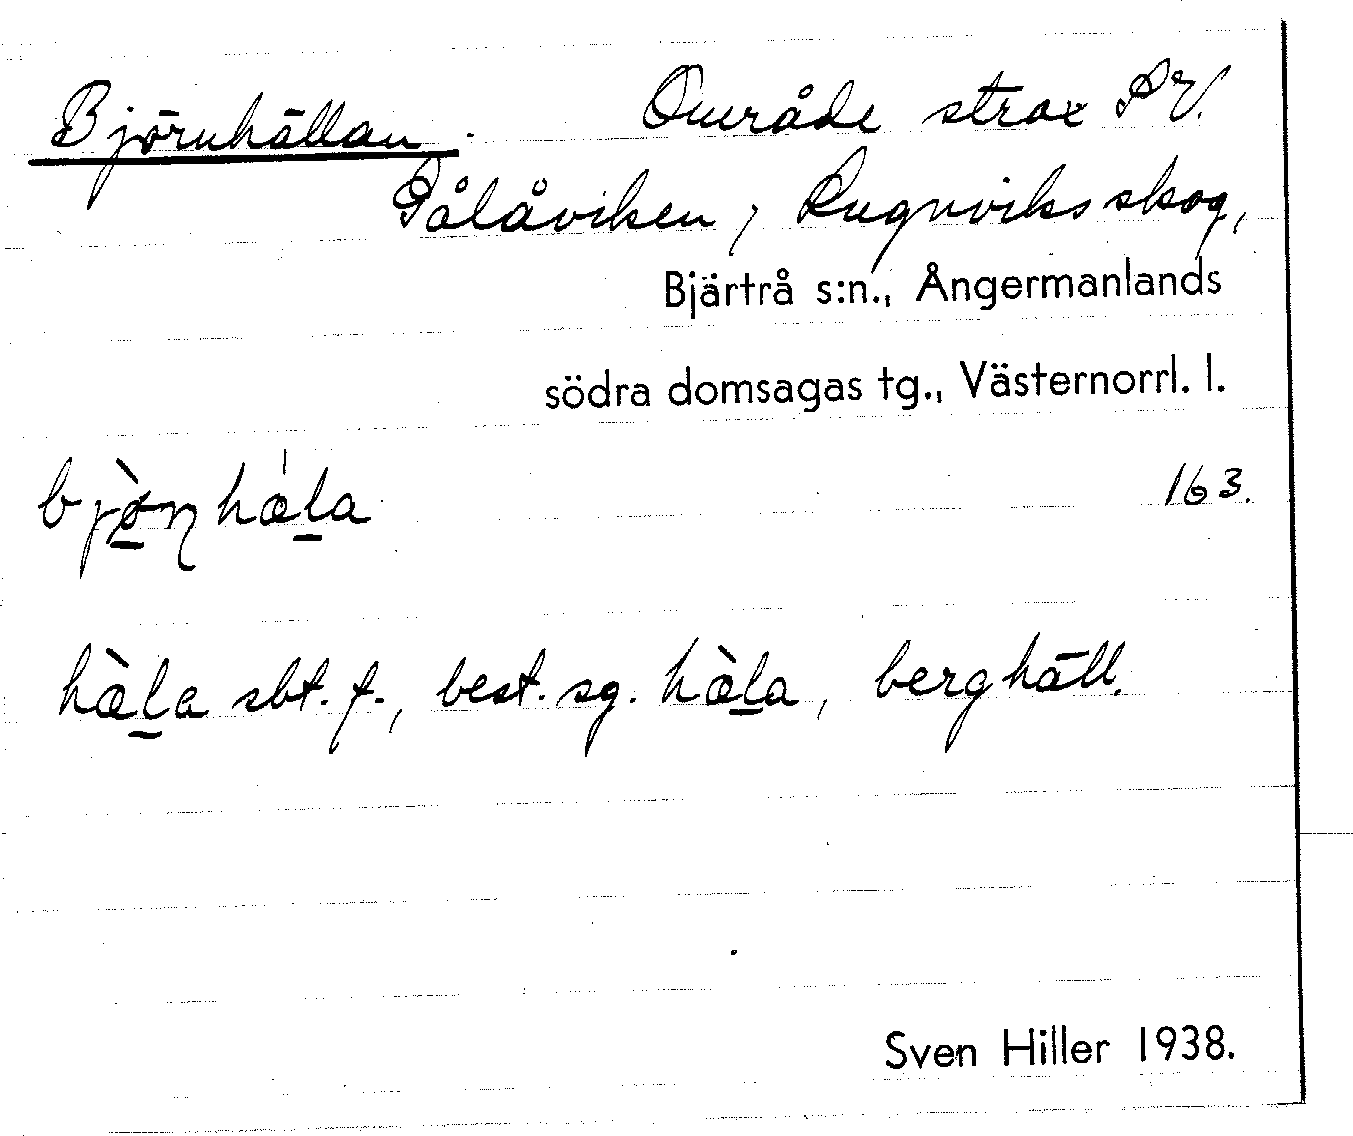 Björnhällan. Område strax SV.
Pålåviken, Lugnviks skog,
Bjärtrå s:n., Ångermanlands
södra domsagas tg., Västernorrl. l.
163.
hæ̀l̠a sbt. f., best. sg. hæ̀l̠a, berghäll.
Sven Hiller 1938.